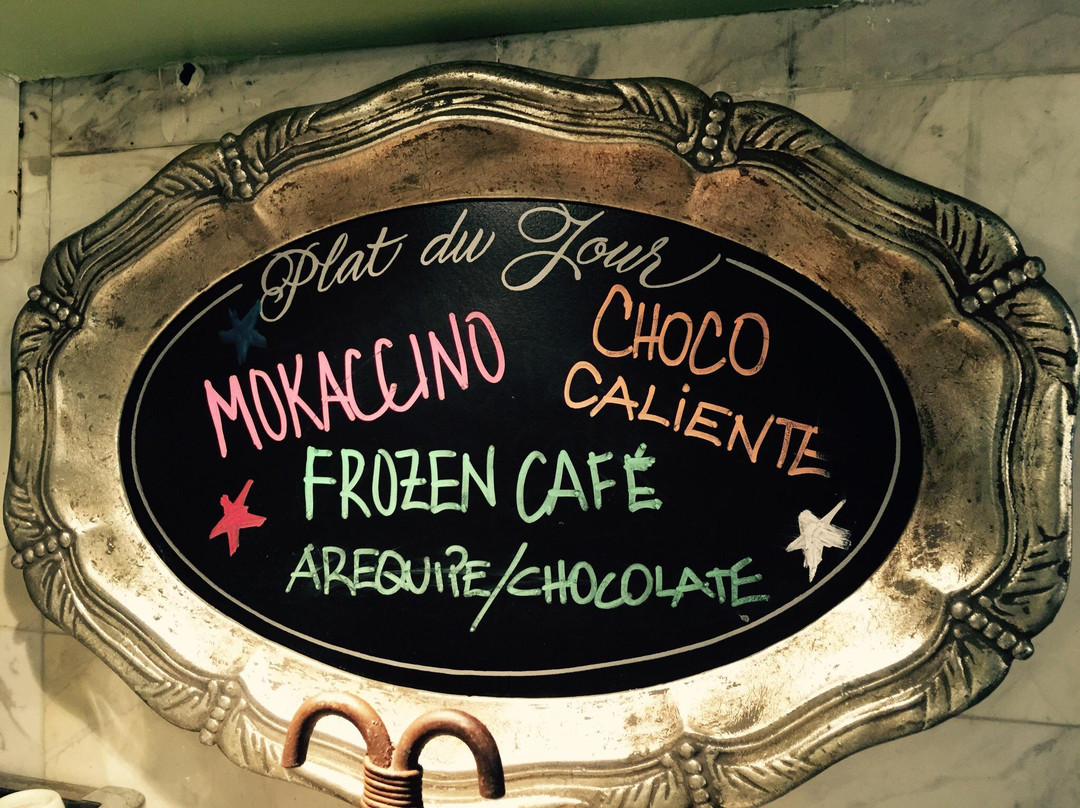 Plat du Jour
MOKACCINO
CHOCO
CALiENTE
FROZEN CAFÉ
AREQUIPE/CHOCOLATE